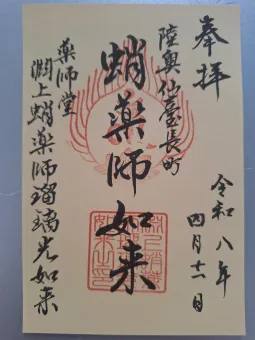 奉拝
陸奥仙臺長町
令和八年
四月十一日
蛸薬師如来
薬師堂
渕上蛸薬師瑠璃光如来